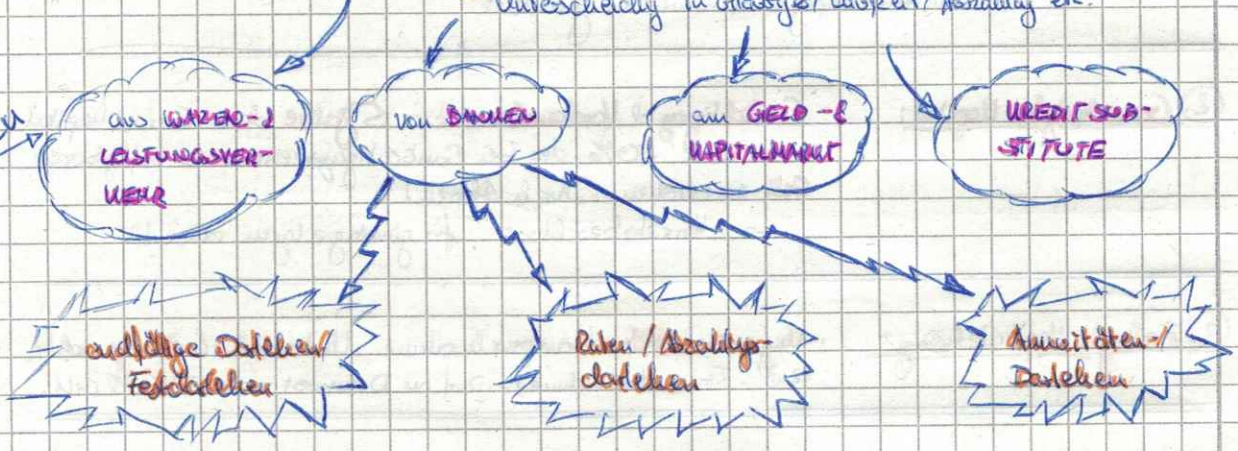 Unterscheidung in Gläubiger/Laufzeit/Abzahlung etc.
aus WAREN-&
LEISTUNGSVER-
KEHR
von BANKEN
am GELD-&
KAPITALMARKT
KREDITSUB-
STITUTE
endfällige Darlehen/
Festdarlehen
Raten/Abzahlungs-
darlehen
Annuitäten-/
Darlehen